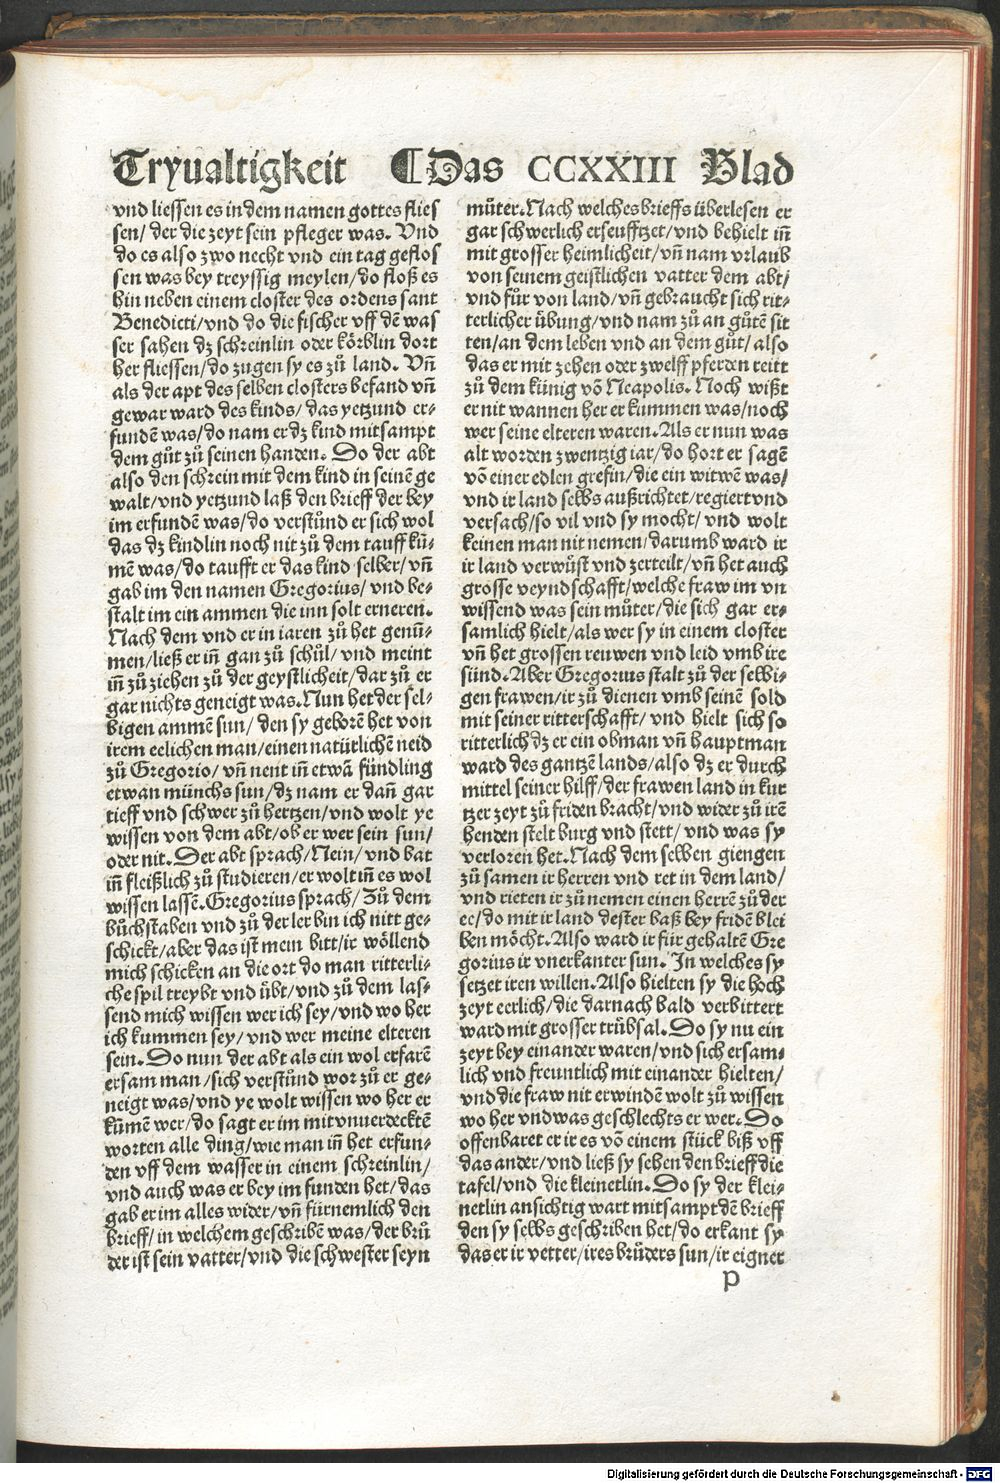 Tryualtigkeit ¶ Das CCXXIII Blad
vnd liessen es in dem namen gottes flies
sen/ der die zeyt sein pfleger was. Vnd
do es also zwo necht vnd ein tag geflos
sen was bey treyssig meylen/do floß es
hin neben einem closter des ordens sant
Benedicti/vnd do die fischer vff dē was
ser sahen dz schreinlin oder körblin dort
her fliessen/do zugen sy es zů land. Vñ
als der apt des selben closters befand vñ
gewar ward des kinds/ das yetzund er⸗
fundē was/do nam er dz kind mitsampt
dem gůt zů seinen handen. Do der abt
also den schrein mit dem kind in seinē ge
walt/vnd yetzund laß den brieff der bey
im erfunden was/do verstůnd er sich wol
das dz kindlin noch nit zů dem tauff kū⸗
mē was/do taufft er das kind selber/vñ
gab im den namen Gregorius/vnd be⸗
stalt im ein ammen die inn solt erneren.
Nach dem vnd er in iaren zů het genū⸗
men/ließ er iñ gan zů schůl/vnd meint
iñ zů ziehen zů der geystlicheit/dar zů er
gar nichts geneigt was. Nun het der sel⸗
bigen ammē sun/ den sy geborē het von
irem eelichen man/einen natürlichē neid
zů Gregorio/vñ nent iñ etwā fündling
etwan münchs sun/dz nam er dañ gar
tieff vnd schwer zů hertzen/vnd wolt ye
wissen von dem abt/ob er wer sein sun/
oder nit. Der abt sprach/Nein/vnd bat
iñ fleißlich zů studieren/er wolt iñ es wol
wissen lassē. Gregorius sprach/Zů dem
bůchstaben vnd zů der ler bin ich nitt ge⸗
schickt/aber das ist mein bitt/ir wöllend
mich schicken an die ort do man ritterli⸗
che spil treybt vnd übt/vnd zů dem las⸗
send mich wissen wer ich sey/vnd wo her
ich kummen sey/vnd wer meine elteren
sein. Do nun der abt als ein wol erfarē
ersam man/sich verstůnd wor zů er ge⸗
neigt was/vnd ye wolt wissen wo her er
kūmē wer/do sagt er im mit vnuerdecktē
worten alle ding/wie man iñ het erfun⸗
den vff dem wasser in einem schreinlin/
vnd auch was er bey im funden het/das
gab er im alles wider/vñ fürnemlich den
brieff/in welchem geschribē was/der brů
der ist sein vatter/vnd die schwester seyn
můter. Nach welches brieffs überlesen er
gar schwerlich erseufftzet/vnd behielt iñ
mit grosser heimlicheit/vñ nam vrlaub
von seinem geistlichen vatter dem abt/
vnd fůr von land/vñ gebraucht sich rit⸗
terlicher übung/vnd nam zů an gůtē sit
ten/an dem leben vnd an dem gůt/also
das er mit zehen oder zwelff pferden reitt
zů dem künig võ Neapolis. Noch wißt
er nit wannen her er kummen was/noch
wer seine elteren waren. Als er nun was
alt worden zwentzig iar/do hort er sagē
võ einer edlen grefin/die ein witwē was/
vnd ir land selbs außrichtet/regiert vnd
versach/so vil vnd sy mocht/ vnd wolt
keinen man nit nemen/darumb ward ir
ir land verwůst vnd zerteilt/vñ het auch
grosse veyndschafft/welche fraw im vn
wissend was sein můter/die sich gar er⸗
samlich hielt/als wer sy in einem closter
vñ het grossen reuwen vnd leid vmb ire
sünd. Aber Gregorius stalt zů der selbi⸗
gen frawen/ir zů dienen vmb seinē sold
mit seiner ritterschafft/ vnd hielt sich so
ritterlich dz er ein obman vñ hauptman
ward des gantzē lands/also dz er durch
mittel seiner hilff/der frawen land in kur
tzer zeyt zů friden bracht/vnd wider zů irē
henden stelt burg vnd stett/ vnd was sy
verloren het. Nach dem selben giengen
zů samen ir herren vnd ret in dem land/
vnd rieten ir zů nemen einen herrē zů der
ee/do mit ir land dester baß bey fridē blei
ben möcht. Also ward ir für gehaltē Gre
gorius ir vnerkanter sun. In welches sy
setzet iren willen. Also hielten sy die hoch
zeyt eerlich/die darnach bald verbittert
ward mit grosser trübsal. Do sy nu ein
zeyt bey einander waren/vnd sich ersam⸗
lich vnd freuntlich mit einander hielten/
vnd die fraw nit erwindē wolt zů wissen
wo her vnd was geschlechts er wer. Do
offenbaret er ir es võ einem stück biß vff
das ander/vnd ließ sy sehen den brieff die
tafel/vnd die kleinetlin. Do sy der klei⸗
netlin ansichtig wart mitsampt dē brieff
den sy selbs geschriben het/do erkant sy
das er ir vetter/ires brůders sun/ir eigner
p
Digitalisierung gefördert durch die Deutsche Forschungsgemeinschaft - DFG